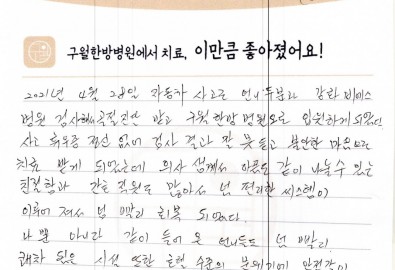 구월한방병원에서 치료, 이만큼 좋아졌어요!
2021년 4월 28일 자동차 사고로 언니 두분과 강화 비에스
병원 검사해 골절진단 받고 구월한방병원으로 입원하게 되었는데
사고 후유증 정신 없어 검사 결과 잘 못 듣고 불안한 마음으로
치료 받게 되었는데 의사 생께서 아픔도 같이 나눌수 있는
친절함과 간호 직원도 많아서 넘 편리한 씨스템이
이루어 져서 넘 빨리 회복 되었다.
나 뿐 아니라 같이 들어 온 언니들도 넘 빨리
쾌차 됬음 시설 또한 호텔 수준의 분위기에 안정감이